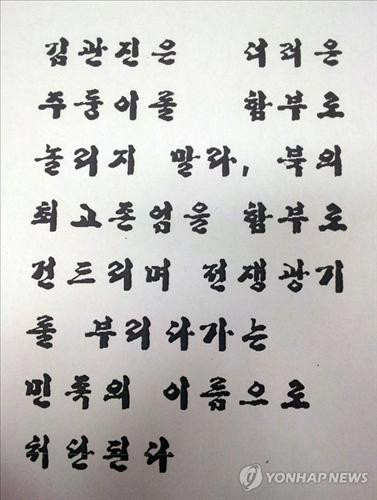 김관진은 더러운
주둥이를 함부로
놀리지 말라, 북의
최고존엄을 함부로
건드리며 전쟁광기
를 부리다가는
민족의 이름으로
처단된다
YONHAP NEWS